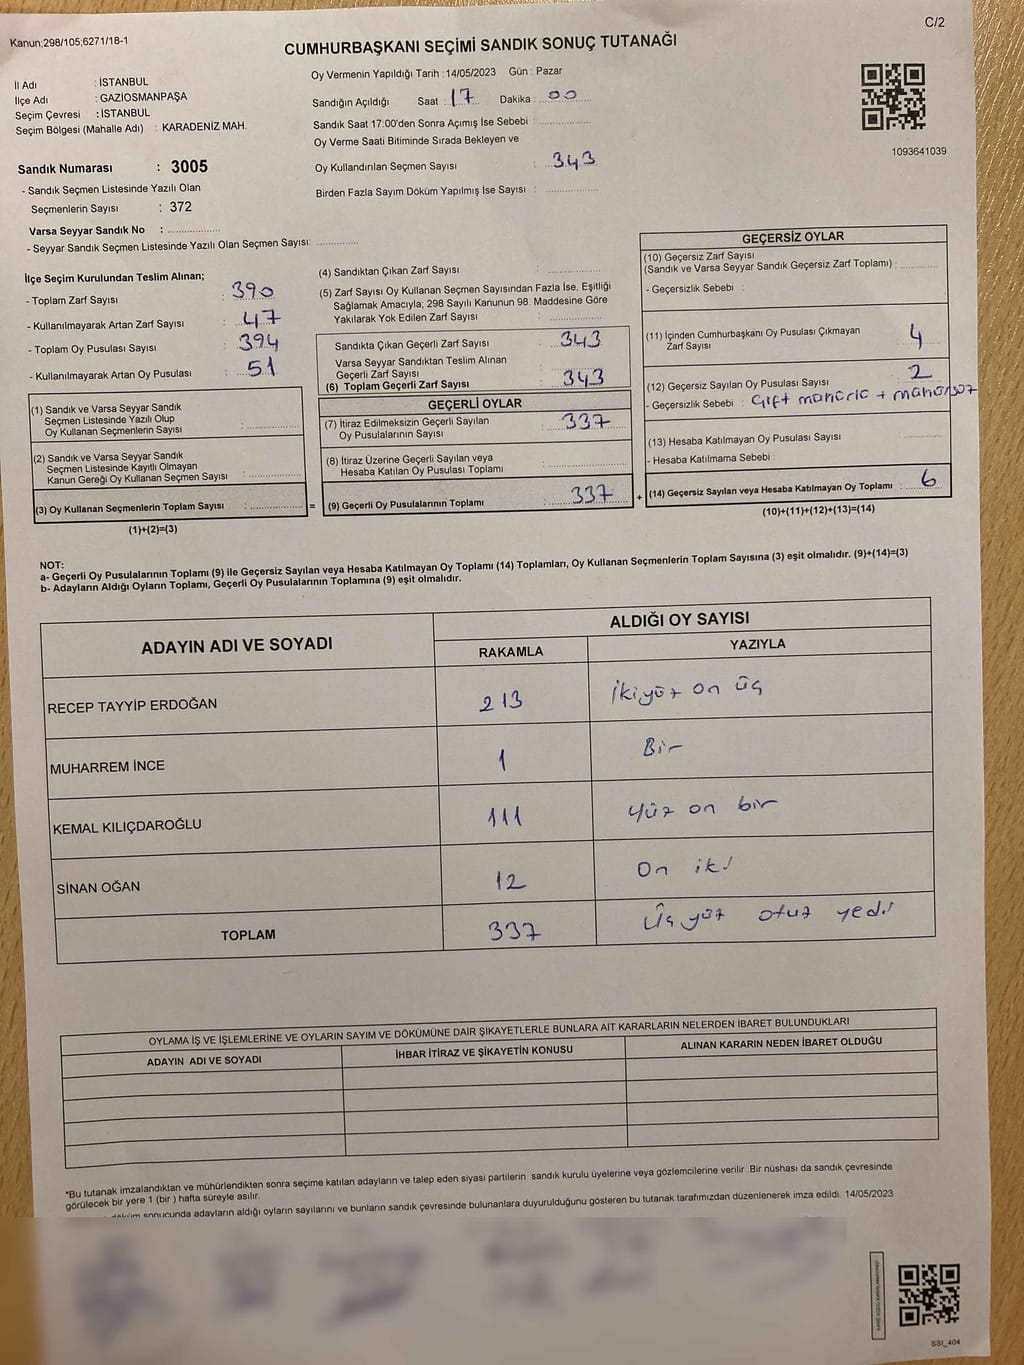 Kanun;298/105;6271/18-1
C/2
CUMHURBAŞKANI SEÇİMİ SANDIK SONUÇ TUTANAĞI
İl Adı : İSTANBUL
İlçe Adı : GAZİOSMANPAŞA
Seçim Çevresi : İSTANBUL
Seçim Bölgesi (Mahalle Adı) : KARADENİZ MAH.
Sandık Numarası : 3005
- Sandık Seçmen Listesinde Yazılı Olan
Seçmenlerin Sayısı : 372
Varsa Seyyar Sandık No :
- Seyyar Sandık Seçmen Listesinde Yazılı Olan Seçmen Sayısı:
Oy Vermenin Yapıldığı Tarih : 14/05/2023 Gün : Pazar
Sandığın Açıldığı Saat : 17 Dakika : 00
Sandık Saat 17:00'den Sonra Açımış İse Sebebi :
Oy Verme Saati Bitiminde Sırada Bekleyen ve
Oy Kullandırılan Seçmen Sayısı : 343
Birden Fazla Sayım Döküm Yapılmış İse Sayısı :
1093641039
İlçe Seçim Kurulundan Teslim Alınan;
- Toplam Zarf Sayısı : 390
- Kullanılmayarak Artan Zarf Sayısı : 47
- Toplam Oy Pusulası Sayısı : 394
- Kullanılmayarak Artan Oy Pusulası : 51
(1) Sandık ve Varsa Seyyar Sandık
Seçmen Listesinde Yazılı Olup
Oy Kullanan Seçmenlerin Sayısı :
(2) Sandık ve Varsa Seyyar Sandık
Seçmen Listesinde Kayıtlı Olmayan
Kanun Gereği Oy Kullanan Seçmen Sayısı :
(3) Oy Kullanan Seçmenlerin Toplam Sayısı : =
(1)+(2)=(3)
(4) Sandıktan Çıkan Zarf Sayısı :
(5) Zarf Sayısı Oy Kullanan Seçmen Sayısından Fazla İse, Eşitliği
Sağlamak Amacıyla; 298 Sayılı Kanunun 98. Maddesine Göre
Yakılarak Yok Edilen Zarf Sayısı :
Sandıkta Çıkan Geçerli Zarf Sayısı : 343
Varsa Seyyar Sandıktan Teslim Alınan
Geçerli Zarf Sayısı :
(6) Toplam Geçerli Zarf Sayısı : 343
GEÇERLİ OYLAR
(7) İtiraz Edilmeksizin Geçerli Sayılan : 337
Oy Pusulalarının Sayısı
(8) İtiraz Üzerine Geçerli Sayılan veya
Hesaba Katılan Oy Pusulası Toplamı :
(9) Geçerli Oy Pusulalarının Toplamı : 337 +
GEÇERSİZ OYLAR
(10) Geçersiz Zarf Sayısı
(Sandık ve Varsa Seyyar Sandık Geçersiz Zarf Toplamı) :
- Geçersizlik Sebebi :
(11) İçinden Cumhurbaşkanı Oy Pusulası Çıkmayan : 4
Zarf Sayısı
(12) Geçersiz Sayılan Oy Pusulası Sayısı : 2
- Geçersizlik Sebebi : çift mühürlü + mühürsüz
(13) Hesaba Katılmayan Oy Pusulası Sayısı :
- Hesaba Katılmama Sebebi :
(14) Geçersiz Sayılan veya Hesaba Katılmayan Oy Toplamı : 6
(10)+(11)+(12)+(13)=(14)
NOT:
a- Geçerli Oy Pusulalarının Toplamı (9) ile Geçersiz Sayılan veya Hesaba Katılmayan Oy Toplamı (14) Toplamları, Oy Kullanan Seçmenlerin Toplam Sayısına (3) eşit olmalıdır. (9)+(14)=(3)
b- Adayların Aldığı Oyların Toplamı, Geçerli Oy Pusulalarının Toplamına (9) eşit olmalıdır.
ADAYIN ADI VE SOYADI
ALDIĞI OY SAYISI
RAKAMLA YAZIYLA
RECEP TAYYİP ERDOĞAN 213 ikiyüz on üç
MUHARREM İNCE 1 Bir
KEMAL KILIÇDAROĞLU 111 yüz on bir
SİNAN OĞAN 12 On iki
TOPLAM 337 Üç yüz otuz yedi
OYLAMA İŞ VE İŞLEMLERİNE VE OYLARIN SAYIM VE DÖKÜMÜNE DAİR ŞİKAYETLERLE BUNLARA AİT KARARLARIN NELERDEN İBARET BULUNDUKLARI
ADAYIN ADI VE SOYADI İHBAR İTİRAZ VE ŞİKAYETİN KONUSU ALINAN KARARIN NEDEN İBARET OLDUĞU
*Bu tutanak imzalandıktan ve mühürlendikten sonra seçime katılan adayların ve talep eden siyasi partilerin sandık kurulu üyelerine veya gözlemcilerine verilir. Bir nüshası da sandık çevresinde
görülecek bir yere 1 (bir ) hafta süreyle asılır.
döküm sonucunda adayların aldığı oyların sayılarını ve bunların sandık çevresinde bulunanlara duyurulduğunu gösteren bu tutanak tarafımızdan düzenlenerek imza edildi. 14/05/2023
SSI_404